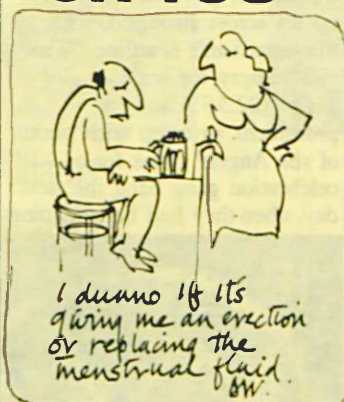 I dunno if its
giving me an erection
or replacing the
menstrual fluid